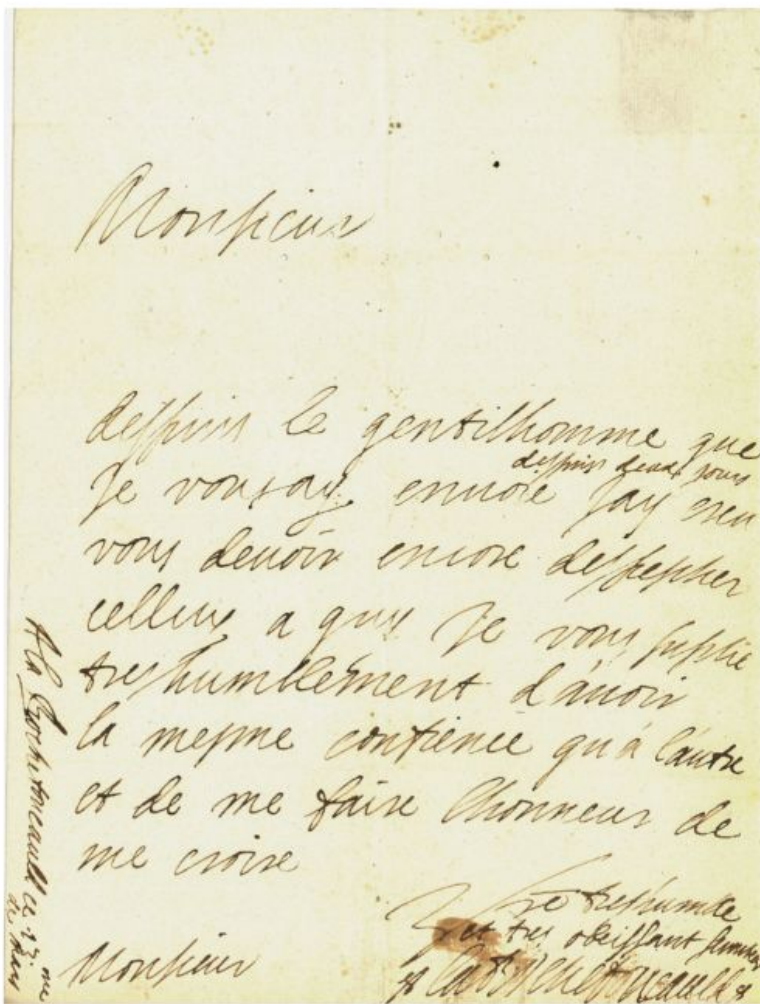 Monsieur
despuis le gentilhomme que
Je vous ay envoié despuis deux jours Jay creu
vous devoir encore despescher
celluy a quy Je vous suplie
tres humblement d'avoir
la mesme confience qu'a l'autre
et de me faire l'honneur de
me croire
Monsieur
Vre tres humble
et tres obeissant serviteur
La Rochefoucauld
A la Rochefoucauld ce
de